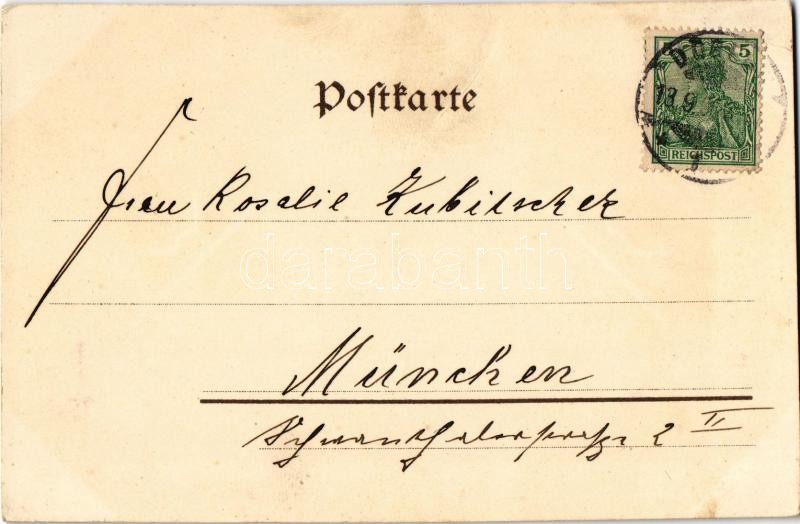 Postkarte
5
REICHSPOST
13 9
Frau Rosalie Kubitschek
darabanth
München
Schwanthalerstraße 2 II